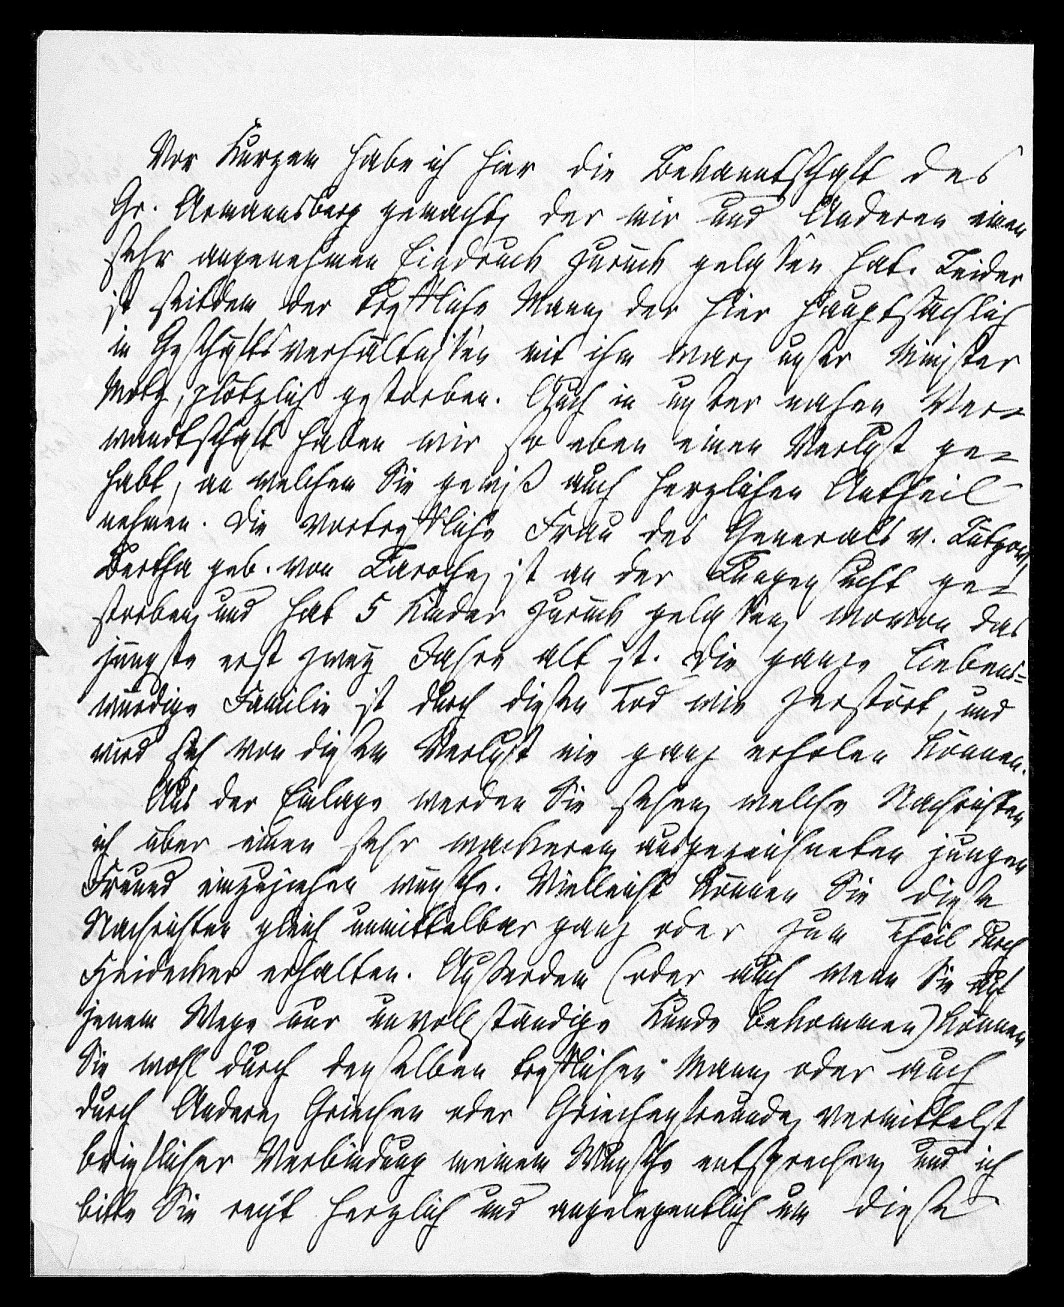 Vor Kurzem habe ich hier die Bekanntschaft des
Gr. Armannsberg gemacht, der mir und Anderen einen
sehr angenehmen Eindruck zurück gelassen hat. Leider
ist seitdem der treffliche Mann, der hier hauptsächlich
in Geschäftsverhältnissen mit ihm war, unser Minister
Motz, plötzlich gestorben. Auch in unsrer nahen Ver-
wandtschaft haben wir so eben einen Verlust ge-
habt, an welchem Sie gewiß auch herzlichen Antheil
nehmen. Die vortreffliche Frau des Generals v. Lützow,
Bertha geb. von Laroche, ist an der Lungensucht ge-
storben, und hat 5 Kinder zurück gelassen, wovon das
jüngste erst zwey Jahre alt ist. Die ganze liebens-
würdige Familie ist durch diesen Tod wie zerstört, und
wird sich von diesem Verlust nie ganz erholen können.
Aus der Einlage werden Sie sehen, welche Nachrichten
ich über einen sehr wackeren, ausgezeichneten jungen
Freund einzuziehen wünsche. Vielleicht können Sie diese
Nachrichten gleich unmittelbar ganz oder zum Theil durch
Heidecker erhalten. Außerdem (oder auch wenn Sie auf
jenem Wege nur unvollständige Kunde bekommen) können
Sie wohl durch denselben trefflichen Mann, oder auch
durch Andere, Griechen oder Griechenfreunde, vermittelst
brieflicher Verbindung meinem Wunsche entsprechen, und ich
bitte Sie recht herzlich und angelegentlich um diese